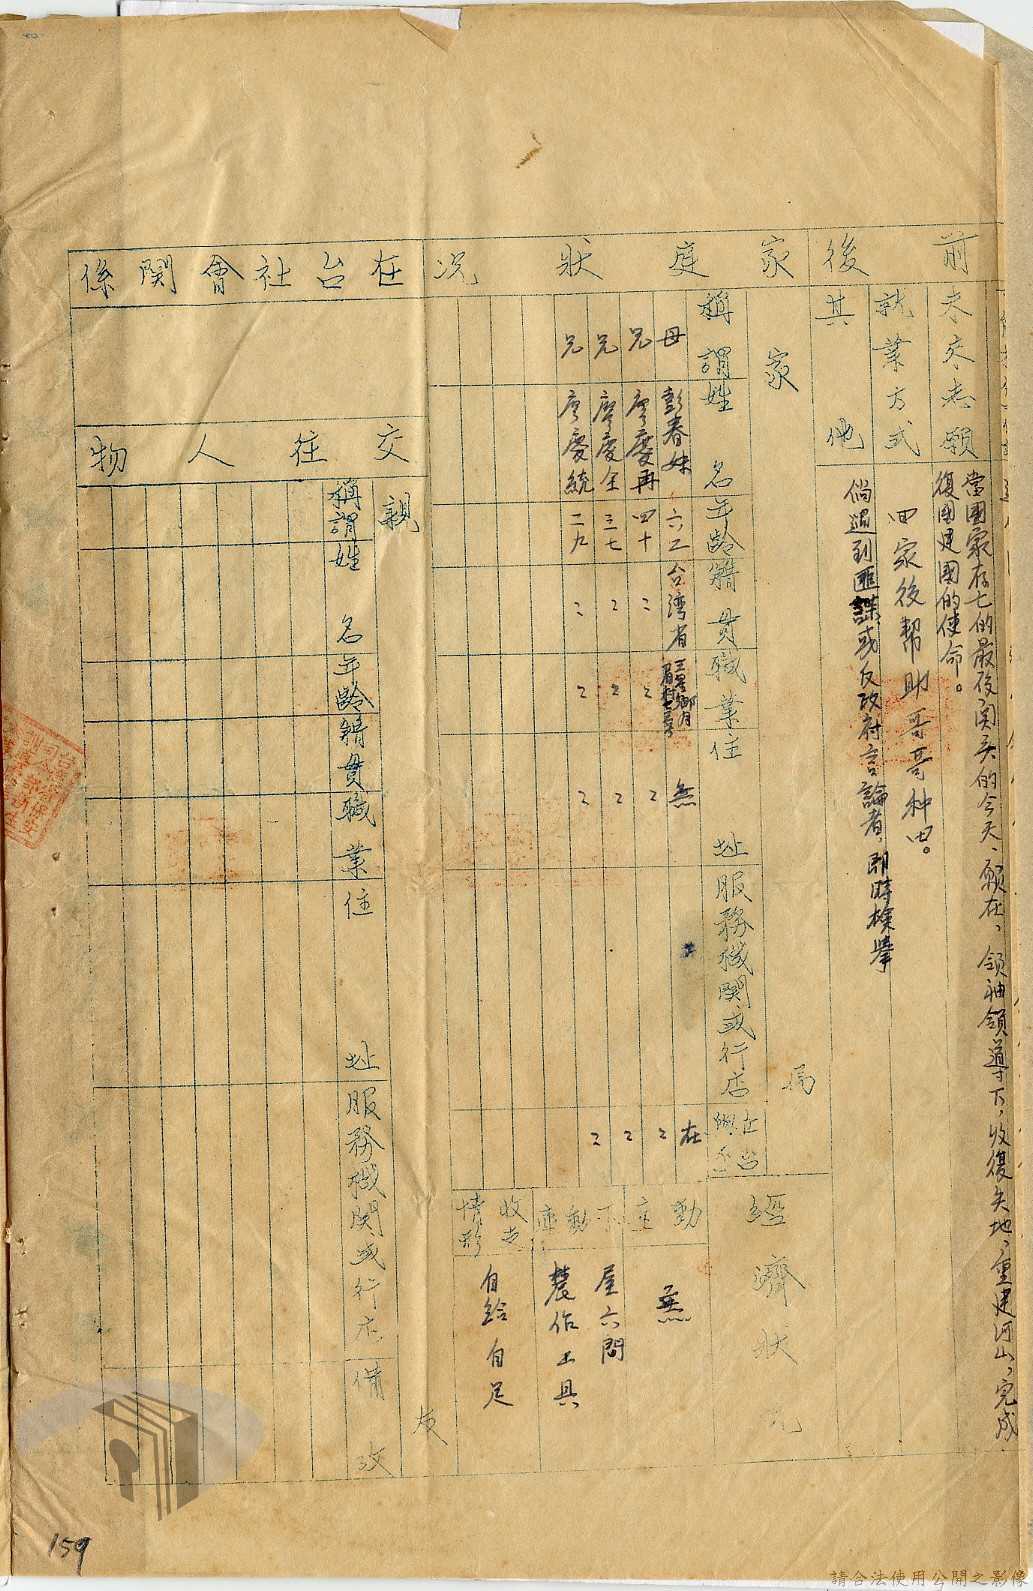 前後
未來志願
當國家存亡的最后関头的今天、願在、領袖領導下，收復失地，重建河山，完成
復國建國的使命。
就業方式
回家後幫助哥哥种田。
其他
倘遇到匪諜或反政府言論者，即時檢舉
家庭狀況
家屬
稱謂 姓名 年齡 籍貫 職業 住址 服務機関或行店
母 彭春妹 六二 台湾省 無 在
兄 廖慶再 四十 〻 〻 〻 〻
兄 廖慶全 三七 〻 〻 〻 〻
兄 廖慶統 二九 〻 〻 〻 〻
經濟狀況
動產 無
不動產 屋六間
農作工具
收支情形 自給自足
在台社會関係
交往人物
親友
稱謂 姓名 年齡 籍貫 職業 住址 服務機関或行店 備攷
159
請合法使用公開之影像